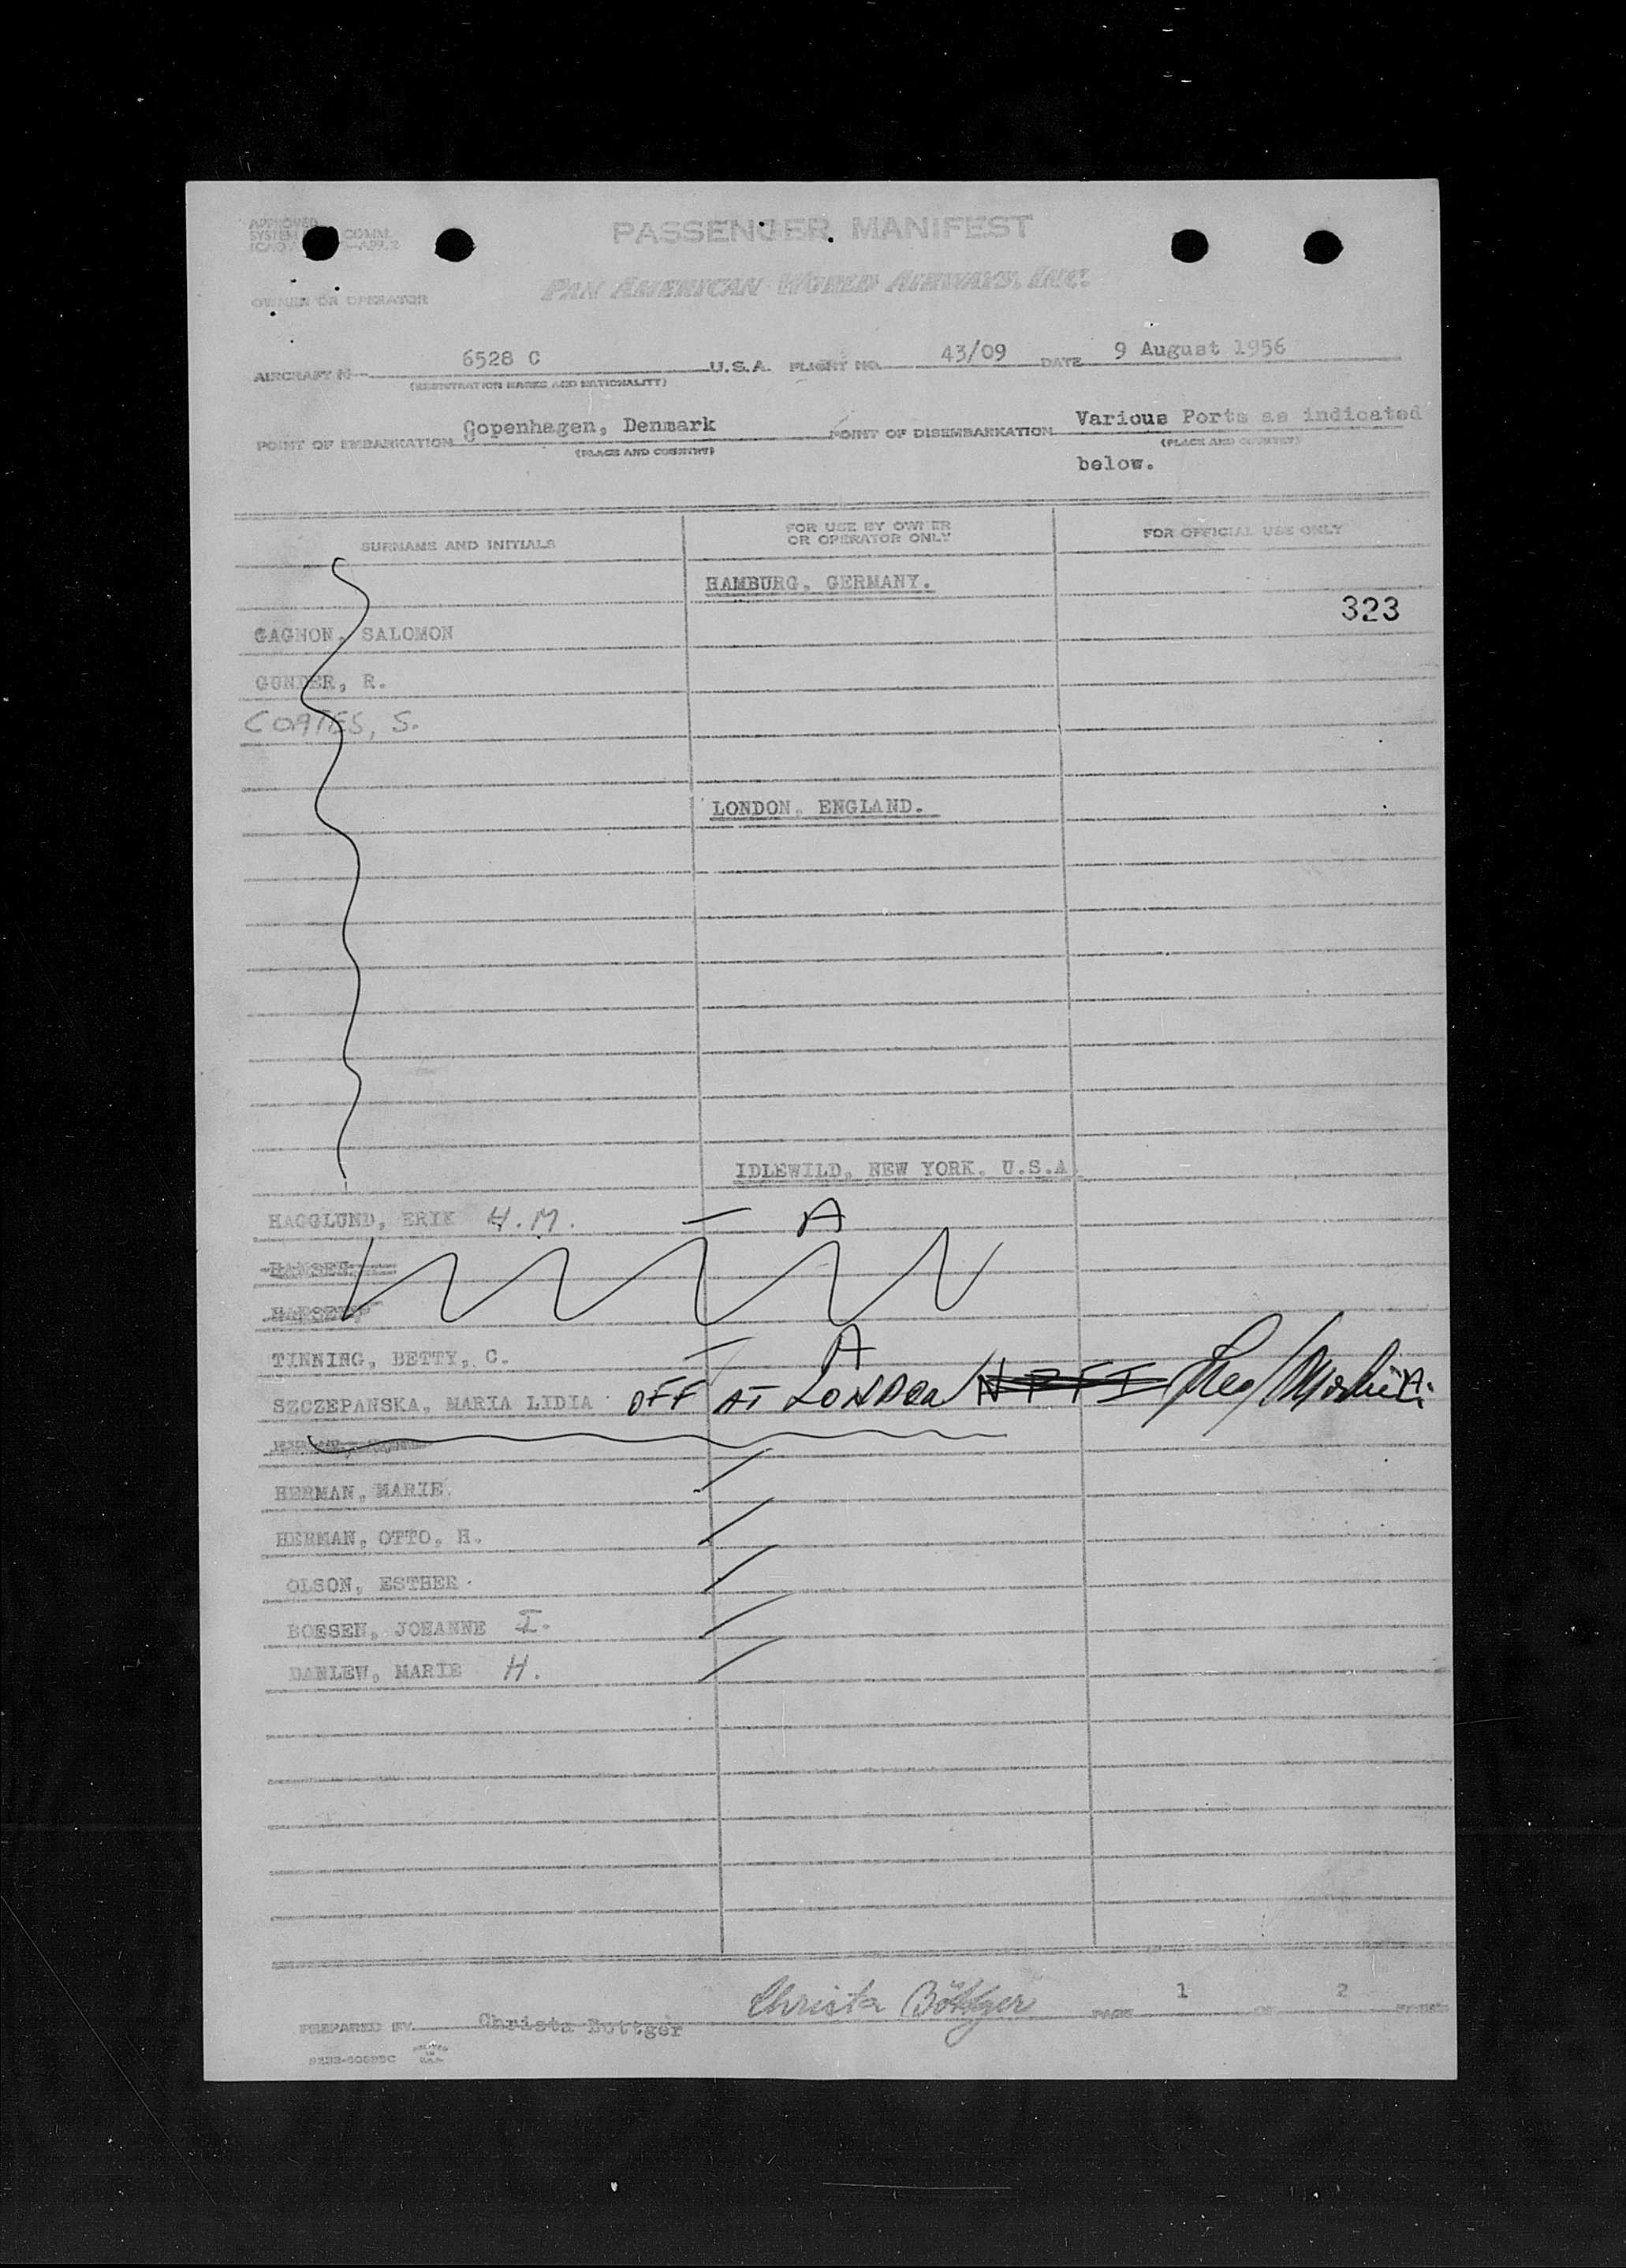 APPROVED
SYSTEM COMM.
PASSENGER MANIFEST
PAN AMERICAN WORLD AIRWAYS, INC.
OWNER OR OPERATOR
AIRCRAFT N 6528 C U.S.A. FLIGHT NO. 43/09 DATE 9 August 1956
(REGISTRATION MARKS AND NATIONALITY)
POINT OF EMBARKATION Copenhagen, Denmark POINT OF DISEMBARKATION Various Ports as indicated
(PLACE AND COUNTRY) (PLACE AND COUNTRY)
below.
SURNAME AND INITIALS FOR USE BY OWNER OR OPERATOR ONLY FOR OFFICIAL USE ONLY
HAMBURG, GERMANY.
323
GAGNON, SALOMON
GUNTER, R.
COATES, S.
LONDON, ENGLAND.
IDLEWILD, NEW YORK, U.S.A.
HAGGLUND, ERIK H.M. — A
HANSEN,
TINNING, BETTY, C. — A
SZCZEPANSKA, MARIA LIDIA OFF AT LONDON
HERMAN, MARIE
HERMAN, OTTO, H.
OLSON, ESTHER
BOESEN, JOHANNE I.
DANLEW, MARIE H.
Christa Böttger
PREPARED BY Christa Bottger PAGE 1 OF 2 PAGES
PRINTED IN U.S.A.